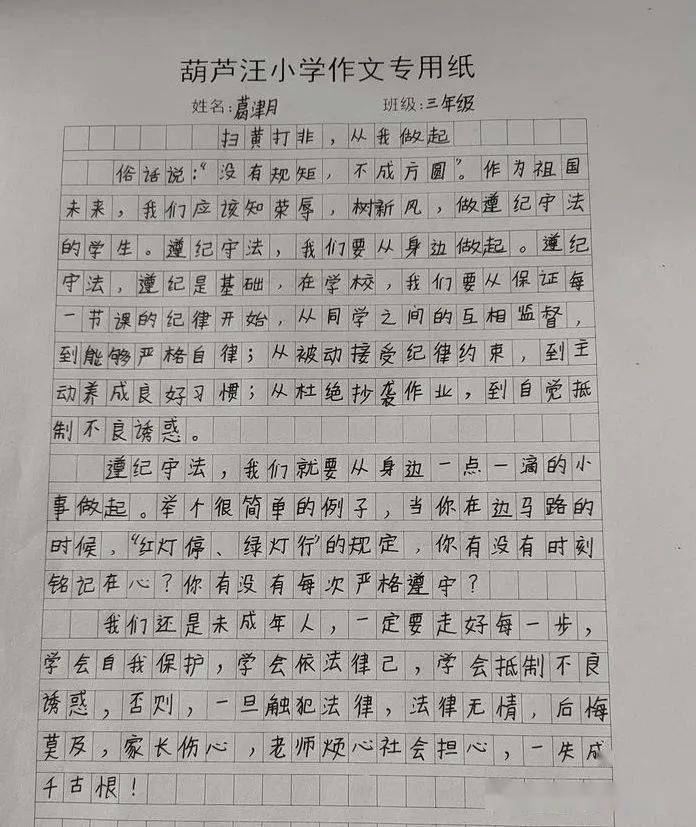 葫芦汪小学作文专用纸
姓名:葛津月 班级:三年级
扫黄打非，从我做起
俗话说：“没有规矩，不成方圆”。作为祖国
未来，我们应该知荣辱，树新风，做遵纪守法
的学生。遵纪守法，我们要从身边做起。遵纪
守法，遵纪是基础，在学校，我们要从保证每
一节课的纪律开始，从同学之间的互相监督，
到能够严格自律；从被动接受纪律约束，到主
动养成良好习惯；从杜绝抄袭作业，到自觉抵
制不良诱惑。
遵纪守法，我们就要从身边一点一滴的小
事做起。举个很简单的例子，当你在边马路的
时候，“红灯停、绿灯行”的规定，你有没有时刻
铭记在心？你有没有每次严格遵守？
我们还是未成年人，一定要走好每一步，
学会自我保护，学会依法律己，学会抵制不良
诱惑，否则，一旦触犯法律，法律无情，后悔
莫及，家长伤心，老师烦心社会担心，一失成
千古恨！